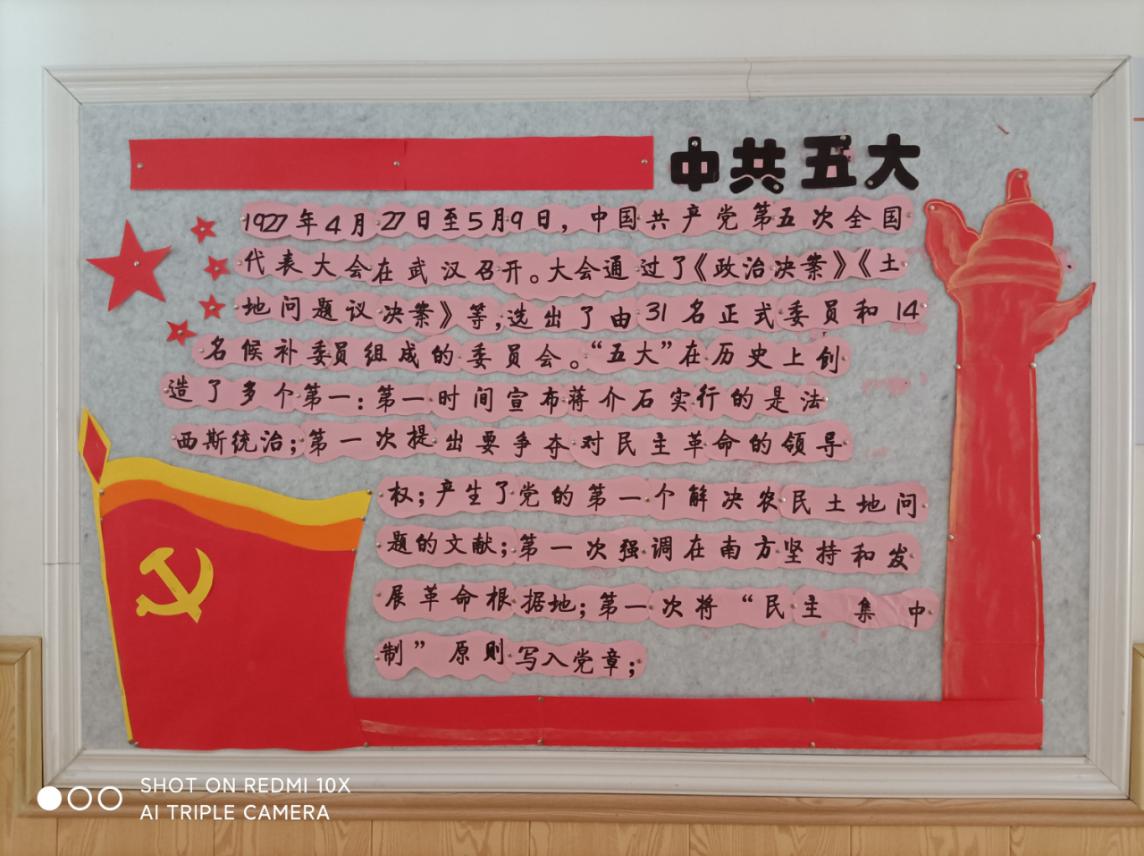 中共五大
1927年4月27日至5月9日，中国共产党第五次全国
代表大会在武汉召开。大会通过了《政治决案》《土
地问题议决案》等，选出了由31名正式委员和14
名候补委员组成的委员会。“五大”在历史上创
造了多个第一：第一时间宣布蒋介石实行的是法
西斯统治；第一次提出要争夺对民主革命的领导
权；产生了党的第一个解决农民土地问
题的文献；第一次强调在南方坚持和发
展革命根据地；第一次将“民主集中
制”原则写入党章；
SHOT ON REDMI 10X
AI TRIPLE CAMERA